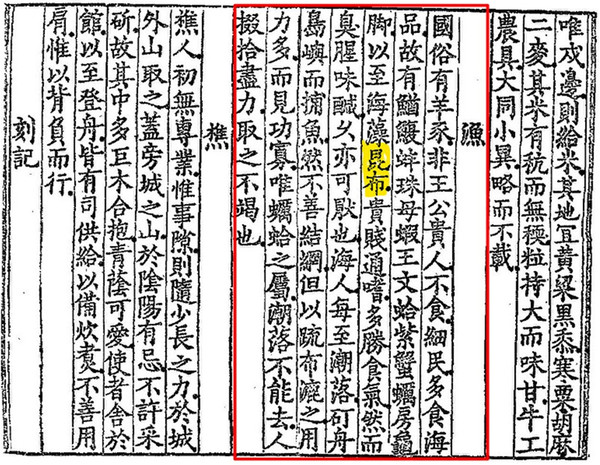 唯戍邊則給米其地冝黃粱黑黍寒粟胡麻
二麥其米有秔而無稬粒持大而味甘牛工
農具大同小異略而不載
漁
國俗有羊豕非王公貴人不食細民多食海
品故有鰌鰒蚌珠母蝦王文蛤紫蟹蠣房龜
脚以至海藻昆布貴賤通嗜多勝食氣然而
臭腥味鹹久亦可猒也海人每至潮落矴舟
島嶼而捕魚然不善結網但以疏布漉之用
力多而見功寡唯蠣蛤之屬潮落不能去人
掇拾盡力取之不竭也
樵
樵人初無專業惟事隙則隨少長之力於城
外山取之蓋旁城之山於陰陽有忌不許采
斫故其中多巨木合抱青蔭可愛使者舍於
館以至登舟皆有司供給以備炊爨不善用
肩惟以背負而行
刻記